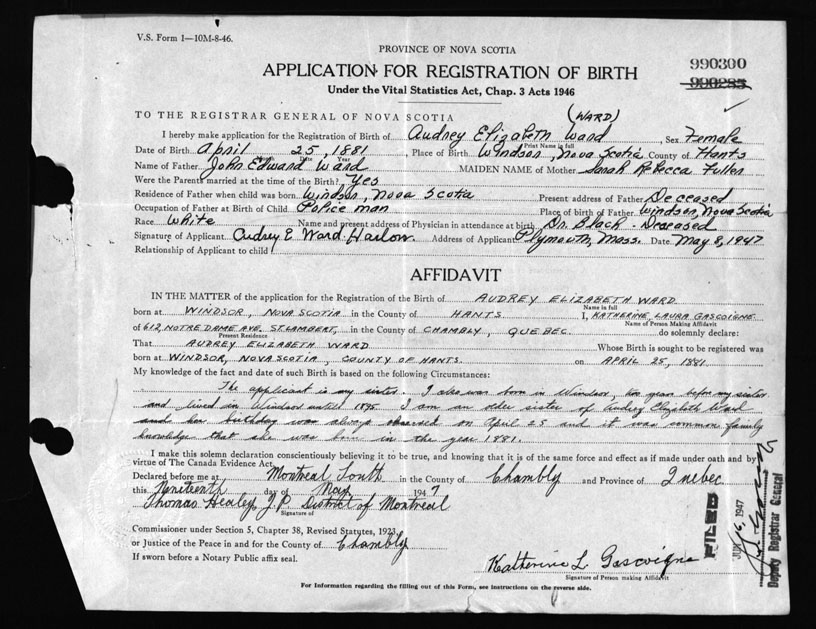 V.S. Form 1—10M-8-46.
PROVINCE OF NOVA SCOTIA
990300
APPLICATION FOR REGISTRATION OF BIRTH
990285
Under the Vital Statistics Act, Chap. 3 Acts 1946
TO THE REGISTRAR GENERAL OF NOVA SCOTIA
(WARD)
I hereby make application for the Registration of Birth of Audrey Elizabeth Ward, Sex Female
Print Name in full
Date of Birth April 25, 1881, Place of Birth Windsor, Nova Scotia County of Hants
Date Year
Name of Father John Edward Ward MAIDEN NAME of Mother Sarah Rebecca Fuller
Were the Parents married at the time of Birth? Yes
Residence of Father when child was born Windsor, Nova Scotia Present address of Father Deceased
Occupation of Father at Birth of Child Police man Place of birth of Father Windsor, Nova Scotia
Race White Name and present address of Physician in attendance at birth Dr. Black - Deceased
Signature of Applicant Audrey E. Ward Harlow. Address of Applicant Plymouth, Mass. Date May 8, 1947
Relationship of Applicant to child
AFFIDAVIT
IN THE MATTER of the application for the Registration of the Birth of AUDREY ELIZABETH WARD
Name in full
born at WINDSOR, NOVA SCOTIA in the County of HANTS I, KATHERINE LAURA GASCOIGNE
Name of Person Making Affidavit
of 612, NOTRE DAME AVE. ST. LAMBERT, in the County of CHAMBLY, QUEBEC. do solemnly declare:
Present Residence
That AUDREY ELIZABETH WARD Whose Birth is sought to be registered was
born at WINDSOR, NOVA SCOTIA, COUNTY OF HANTS. on APRIL 25, 1881.
My knowledge of the fact and date of such Birth is based on the following Circumstances:
The applicant is my sister. I also was born in Windsor, two years before my sister
and lived in Windsor until 1895. I am an older sister of Audrey Elizabeth Ward
and her birthday was always observed on April 25 and it was common family
knowledge that she was born in the year 1881.
I make this solemn declaration conscientiously believing it to be true, and knowing that it is of the same force and effect as if made under oath and by
virtue of The Canada Evidence Act.
Declared before me at Montreal South in the County of Chambly and Province of Quebec
this Nineteenth day of May 1947
Thomas Healey, J.P. District of Montreal
Signature of
Commissioner under Section 5, Chapter 38, Revised Statutes, 1923,
or Justice of the Peace in and for the County of Chambly
If sworn before a Notary Public affix seal.
Katherine L. Gascoigne
Signature of Person making Affidavit
For Information regarding the filling out of this Form, see instructions on the reverse side.
FILED
JUN 16, 1947
Deputy Registrar General